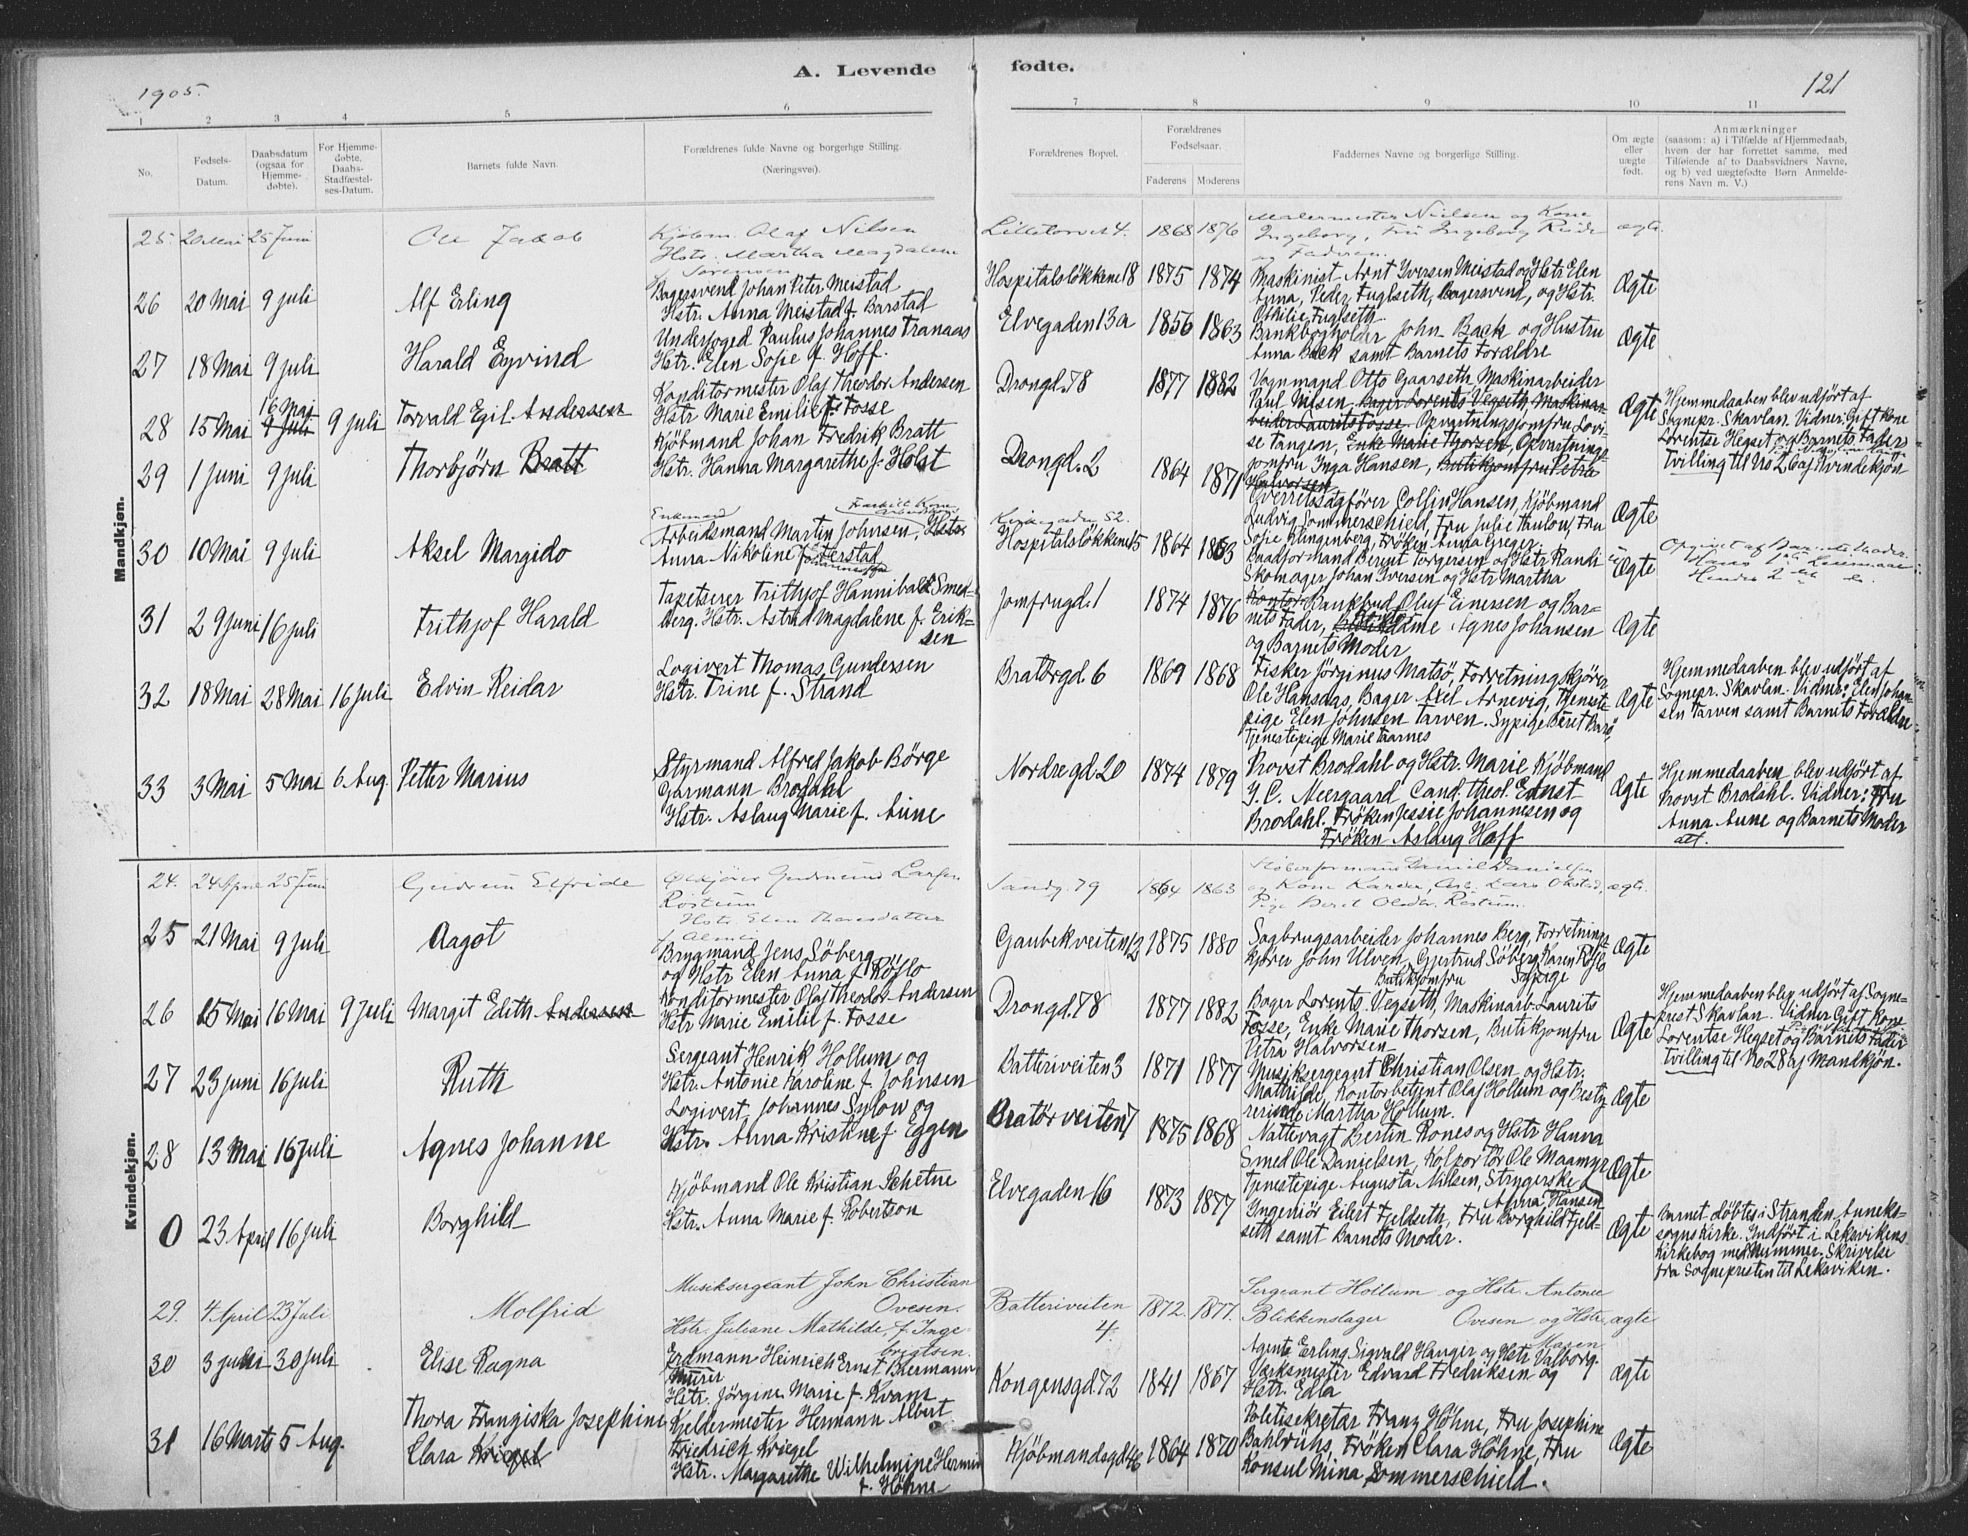 1905.
A. Levende fødte.
121
1 2 3 4 5 6 7 8 9 10 11
No.
Fødsels-Datum.
Daabsdatum (ogsaa for Hjemme-døbte).
For Hjemme-døbte. Daabs-Stadfæstel-ses-Datum.
Barnets fulde Navn.
Forældrenes fulde Navne og borgerlige Stilling.
(Næringsvei).
Forældrenes Bopæl.
Forældrenes Fødselsaar.
Faderens Moderens
Faddernes Navne og borgerlige Stilling.
Om ægte eller uægte født.
Anmærkninger
(saasom: a) i Tilfælde af Hjemmedaab,
hvem der har forrettet samme, med
Tilføiende af to Daabsvidners Navne,
og b) ved uægtefødte Børn Anmelde-
rens Navn m. V.)
Mandkjøn.
25. 20 Mai 25 Juni
Ole Jakob
Kjøbm. Olaf Nilsen
Hstr. Martha Magdalene
f. Sørensen
Lilletorvet 4.
1868 1876
Malermester Nielsen og Kone
Ingeborg, Fru Ingeborg
og Faderen.
ægte.
26 20 Mai 9 Juli
Alf Erling
Bagersvend Johan Peter Meistad
Hstr. Anna Meistad f. Barstad
Hospitalsløkkene 18
1875 1874
Maskinist Arnt Iversen Meistad og Hstr Elen
Anna, Peder Fuglseth, Bagersvend, og Hstr.
Othilie Fuglseth
Ægte
27 18 Mai 9 Juli
Harald Eyvind
Underfoged Paulus Johannes Tranaas
Hstr. Elen Sofie f. Hoff.
Elvegaden 13a
1856 1863
Bankbogholder John Back og Hustru
Anna Back samt Barnets Forældre
Ægte
28 15 Mai 16 Mai 9 Juli 9 Juli
Torvald Egil Andersen
Konditormester Olaf Theodor Andersen
Hstr Marie Emilie f. Fosse
Drongd. 78
1877 1882
Vognmand Otto Gaarseth Maskinarbeider
Paul Nilsen Bager Lorents Vegseth, Maskinar-
beider Laurits Fosse. Opvartningsjomfru Lovi-
se Tangen, Enke Marie Thorzen, Opvartnings-
jomfru Inga Hansen, Butikjomfru Petra
Halvorsen
Ægte
Hjemmedaaben blev udført af
Sognepr. Skavlan. Vidner: Gift Kone
Lorentse Hegset og Barnets Fader
Tvilling til No 26 af Kvindekjøn
29 1 Juni 9 Juli
Thorbjørn Bratt
Kjøbmand Johan Fredrik Bratt
Hstr. Hanna Margarethe f. Holst
Drongd. 2
1864 1871
Overretssagfører Collin Hansen, Kjøbmand
Ludvig Sommerschield, Fru Julie Paulow, Fru
Sofie Klingenberg, Frøken Anna Greger.
Ægte
30 10 Mai 9 Juli
Aksel Margido
Enkemand
Arbeidsmand Martin Johnsen, Hstr
Anna Nikoline
Hospitalsløkkene 15
1864 1863
Baadformand Bernt Torgersen og Hstr Randi
Skomager Johan Iversen og Hstr Martha
uÆgte
31 29 Juni 16 Juli
Frithjof Harald
Tapetserer Frithjof Hannibal Smed-
berg. Hstr. Astrid Magdalene f. Erik-
sen
Jomfrugd. 1
1874 1876
Kontor Bankbud Oluf Einersen og Bar-
nets Fader, Butikdame Agnes Johansen
og Barnets Moder
Ægte
32 18 Mai 28 Mai 16 Juli
Edvin Reidar
Logivert Thomas Gundersen
Hstr. Trine f. Strand
Bratørgd 6
1869 1868
Fisker Jörginus Matsö, Forretningskjörer
Ole Hansaas, Bager Axel Arnevig, Tjeneste-
pige Elen Johnsen Tarven. Sypige Berit Barö,
Tjenestepige Marie Taarnes
Ægte
Hjemmedaaben blev udført af
Sognepr. Skavlan. Vidner: Elen Johan-
sen Tarven samt Barnets Forældre
33 3 Mai 5 Mai 6 Aug.
Petter Marius
Styrmand Alfred Jakob Börge
Garmann Brodahl
Hstr. Aslaug Marie f. Aune
Nordregd 20
1874 1879
Provst Brodahl og Hstr. Marie Kjöbmand
J. C. Neergaard Cand. theol. Ernst
Brodahl. Frøken Jessie Johannesen og
Frøken Aslaug Hoff
Ægte
Hjemmedaaben blev udført af
Provst Brodahl. Vidner: Fru
Anna Aune og Barnets Moder
att.
Kvindekjøn.
24. 24 April 25 Juni
Gudrun Elfride
Gudmund Larsen
Röstum
Hstr. Elen Theresdatter
Sandg. 79
1864 1863
Daniel Danielsen
og Kone Karen, Lars Okstad,
Pige Beret Olsdtr. Røstum.
ægte.
25 21 Mai 9 Juli
Aagot
Brygmand Jens Söberg
og Hstr Elen Anna f. Röflo
Gaubekveiten 12
1875 1880
Sagbrugsarbeider Johannes Berg, Forretnings-
kjører John Ulven, Gjertrud Söberg, Karen Röflo
Butikjomfru Sypige
Ægte
26 15 Mai 16 Mai 9 Juli
Margit Edith Andersen
Konditormester Olaf Theodor Andersen
Hstr Marie Emilie f. Fosse
Drongd. 78
1877 1882
Bager Lorents Vegseth, Maskinarb. Laurits
Fosse, Enke Marie Thorzen, Butikjomfru
Petra Halvorsen
Ægte
Hjemmedaaben blev udført af Sogne-
prest Skavlan. Vidner Gift Kone
Lorentse Hegset og Barnets Fader
Tvilling til No 28 af Mandkjøn.
27 23 Juni 16 Juli
Ruth
Sergeant Henrik Hollum og
Hstr. Antonie Karoline f. Johnsen
Batteriveiten 3
1871 1877
Musiksergeant Christian Olsen og Hstr.
Mathilde, Kontorbetjent Olaf Hollum og Besty-
rerinde Martha Hollum.
Ægte
28 13 Mai 16 Juli
Agnes Johanne
Logivert Johannes Sylow og
Hstr. Anna Kristine f Eggen
Bratørveiten 7
1875 1868
Nattevagt Bertin Rones og Hstr Hanna
Smed Ole Danielsen, Kolportör Ole Maamyr
Tjenestepige Augusta Nilsen, Strygerske
Anna Hansen
Ægte
0 23 April 16 Juli
Borghild
Kjøbmand Ole Kristian Schetne
Hstr. Anna Marie f. Robertson
Elvegaden 16
1873 1877
Ingeniør Eilert Fjeldseth, Fru Borghild Fjeld-
seth samt Barnets Moder.
Ægte
Barnet döbtes i Stranden Anneks-
sognskirke. Indført i Leksvikens
Kirkebog med Nummer. Skrivelse
fra Sognepresten til Leksviken.
29. 4 April 23 Juli
Molfrid
Musiksergeant John Christian
Ovesen.
Hstr. Juliane Mathilde f. Inge-
brigtsen.
Batteriveiten
4.
1872. 1877.
Sergeant Hollum og Hstr. Antonie
Blikkenslager Ovesen og Hstr.
ægte
30 3 Juni 30 Juli
Elise Ragna
Erdmann Heinrich Ernst Biermann
Murer
Hstr. Jörgine Marie f. Kvam
Kongensgd. 72
1841 1867
Agent Erling Sigvald Hauger og Hstr Valborg.
Værksmester Edvard Fredriksen og
Hstr. Edla
Ægte
31 16 Marts 5 Aug.
Thora Franziska Josephine
Clara Kriegel
Kjeldermester Hermann Albert
Friedrich Kriegel
Hstr. Margarethe Wilhelmine Hermin
f. Höhne
Kjøbmandsgd 46
1864 1870
Politisekretær Franz Höhne, Fru Josephine
Bahlrühs, Frøken Clara Höhne, Fru
Konsul Mina Sommerschield.
Ægte